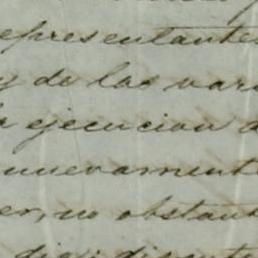 representantes
y de las vari
la ejecucion d
nuevamente
er, no obstant